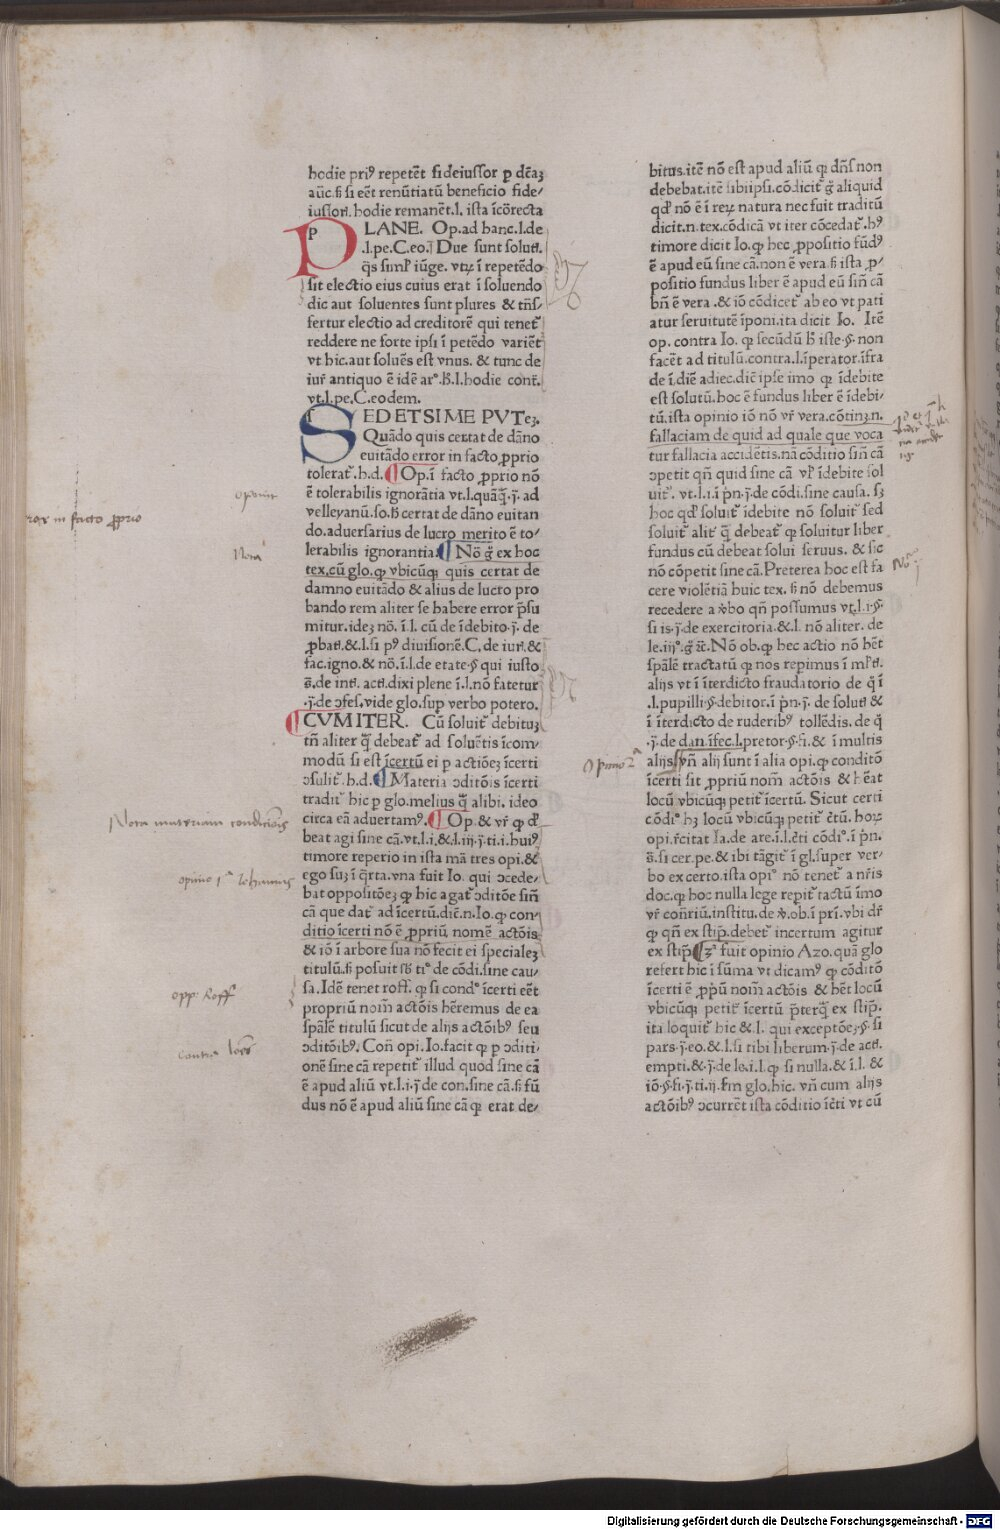 hodie pri⁹ repetēt fideiuſſor p dc̄aꝫ
aūc.ẜ ſi eēt renūtiatū beneficio fide/
iuſſorꝝ.hodie remanēt.l. iſta īcōrecta
PLANE. Op.ad hanc.l.de
.l.pe.C.eo.ī Due ſunt ſolutꝭ.
ſit electio eius cuius erat ī ſoluendo
dic aut ſoluentes ſunt plures & trāſ
fertur electio ad creditorē qui tenet᷑
reddere ne forte ipſi ī petēdo variēt
vt hic.aut ſoluēs eſt vnus. & tunc de
iur̄ antiquo ē idē ar°.h̄.l.hodie contr̄.
vt.l.pe.C.eodem.
SED ET SI ME PVTeꝫ.
Quādo quis certat de dāno
euitādo error in facto ꝓprio
tolerat᷑.h.d. Op.ī facto ꝓprio nō
ē tolerabilis ignorātia vt.l.quāq̄.j̄. ad
velleyanū.ſo.h̄ certat de dāno euitan
do.aduerſarius de lucro merito ē to/
lerabilis ignorantia. Nō ḡ ex hoc
tex.cū glo.ꝙ vbicūqꝫ quis certat de
damno euitādo & alius de lucro pro
bando rem aliter ſe habere error p̄ſu
mitur.ideꝫ nō.ī.l. cū de īdebito.j̄. de
ꝓbatꝭ.&.l.ſi p⁹ diuiſionē.C. de iurꝭ.&
fac.igno.& nō.ī.l.de etate.§ qui iuſto
s̄.de intꝭ. actꝭ.dixi plene ī.l.nō fatetur
.j̄.de ↄfeſ.vide glo.ſup verbo potero.
CVM ITER. Cū ſoluit᷑ debituꝫ
tn̄ aliter q̄ debeat᷑ ad ſoluētis īcom/
modū ſi eſt īcertū ei p actiōeꝫ īcerti
ↄſulit᷑.h.d. Materia ↄditōis īcerti
tradit᷑ hic p glo.melius q̄ alibi. ideo
circa eā aduertam⁹. Op.& vr̄ ꝙ d
beat agi ſine cā.vt.l.i.&.l.iij.j̄.ti.i.hui⁹
timore reperio in iſta mā tres opi.&
ego ſuꝫ ī q̄rta.vna fuit Io. qui ↄcede/
bat oppoſitōeꝫ ꝙ hic agat᷑ ↄditōe ſin̄
cā que dat᷑ ad īcertū.dic̄.n.Io.ꝙ con/
ditio īcerti nō ē ꝓpriū nomē actōis
& iō ī arbore ſua nō fecit ei ſpecialeꝫ
titulū.ẜ poſuit ſb̄ ti° de cōdi.ſine cau/
ſa.Idē tenet roff̄. ꝙ ſi cond° īcerti eēt
propriū noīn actōis hēremus de ea
ſpālē titulū ſicut de alijs actōib⁹ ſeu
ↄditōib⁹. Con̄ opi. Io.facit ꝙ p ↄditi/
onē ſine cā repetit᷑ illud quod ſine cā
ē apud aliū vt.l.i.j̄ de con.ſine cā.ẜ fū
dus nō ē apud aliū ſine cā ꝙ erat de/
bitus.itē nō eſt apud aliū ꝙ dn̄s non
debebat.itē ſibiipſi.cōdicit᷑ ḡ aliquid
qd̄ nō ē ī reꝝ natura nec fuit traditū
dicit.n.tex.cōdicā vt iter cōcedat᷑.h⁹
timore dicit Io.ꝙ hec ꝓpoſitio fūd⁹
ē apud eū ſine cā.non ē vera.ẜ iſta ꝓ/
poſitio fundus liber ē apud eū ſin̄ cā
bn̄ ē vera .& iō cōdicet᷑ ab eo vt pati
atur ſeruitutē īponi.ita dicit Io. Itē
op. contra Io. ꝙ ſecūdū h̄ iſte.§. non
facēt ad titulū.contra.l.īperator.īfra
de ī.diē adiec.dic̄ ipſe imo ꝙ īdebite
eſt ſolutū.hoc ē fundus liber ē īdebi/
tū.iſta opinio iō nō vr̄ vera.cōtinꝫ.n.
fallaciam de quid ad quale que voca
tur fallacia accidētis.nā cōditio ſin̄ cā
ↄpetit qn̄ quid ſine cā vl̄ īdebite ſol
uit᷑. vt.l.i.ī p̄n.j̄.de cōdi.ſine cauſa. ſꝫ
hoc qd̄ ſoluit᷑ īdebite nō ſoluit᷑ ſed
ſoluit᷑ alit᷑ q̄ debeat᷑ ꝙ ſoluitur liber
fundus cū debeat ſolui ſeruus. & ſic
nō cōpetit ſine cā.Preterea hoc eſt fa
cere violētiā huic tex. ẜ nō debemus
recedere a v̄bo qn̄ poſſumus vt.l.i.§.
ſi is.j̄.de exercitoria.&.l. nō aliter. de
ſpālē tractatū ꝙ nos repimus ī ml̄tꝭ.
alijs vt ī īterdicto fraudatorio de q̄ ī
.l.pupilli.§.debitor.ī p̄n.j̄. de ſolutꝭ &
ī īterdicto de ruderib⁹ tollēdis. de q̄
.j̄.de dan.īfec.l.pretor.§.fi.& ī multis
alijs vn̄ alij ſunt ī alia opi.ꝙ conditō
īcerti ſit ꝓpriū nom̄ actōis & hēat
locū vbicūqꝫ petit᷑ īcertū. Sicut certi
cōdi° hꝫ locū vbicūqꝫ petit᷑ c̄tū. hoꝝ
opi.r̄citat Ia.de are.ī.l.c̄ti cōdi°.ī p̄n.
s̄.ſi cer.pe.& ibi tāgit᷑ ī gl.ſuper ver/
bo ex certo.iſta opi° nō tenet᷑ a nr̄is
doc.ꝙ hoc nulla lege repit᷑ tactū īmo
vr̄ con̄riū.inſtitu.de v̄.ob.ī pri.vbi dr̄
ꝙ qn̄ ex ſtip̄.debet᷑ incertum agitur
ex ſtip̄ fuit opinio Azo.quā glo
refert hic ī ſūma vt dicam⁹ ꝙ cōditō
īcerti ē ꝓp̄ū noīn actōis & hēt locū
vbicūqꝫ petit᷑ īcertū p̄terq̄ ex ſtip̄.
ita loquit᷑ hic &.l. qui exceptōeꝫ.§.ſi
pars.j̄.eo.&.l.ſi tibi liberum.j̄.de actꝭ.
empti.&.j̄.de le.i.l.ꝙ ſi nulla.& ī.l. &
iō.§.fi.j̄.ti.ij.ẜm glo.hic. vn̄ cum alijs
actōib⁹ ↄcurrēt iſta cōditio īc̄ti vt cū
Nota materiam condicionis
Digitalisierung gefördert durch die Deutsche Forschungsgemeinschaft - DFG